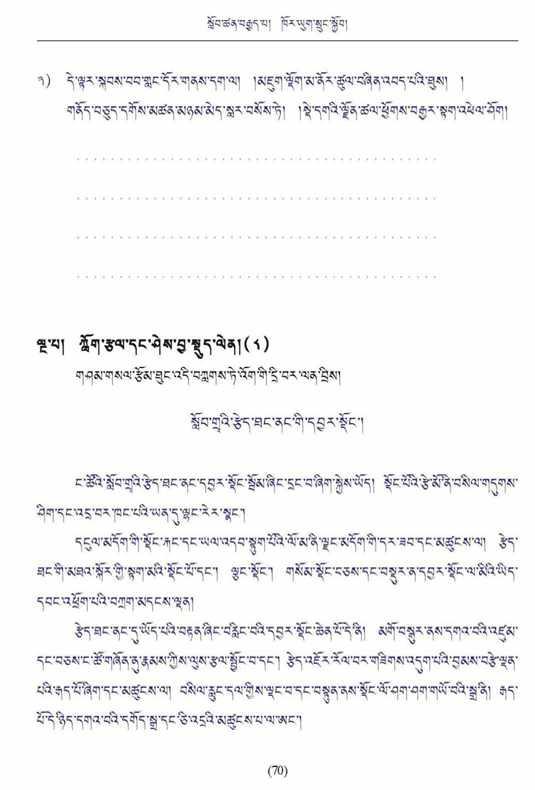 སློབ་ཚན་བརྒྱད་པ། ཁོར་ཡུག་སྲུང་སྐྱོབ།
༣) དེ་ལྟར་སྐབས་བབ་བླང་དོར་གནས་དག་ལ། །མཇུག་ལྡོག་མ་ནོར་ཚུལ་བཞིན་འབད་པའི་ཐུས། །
གནོད་བཅུད་དགོས་མཚན་མཉམ་མེད་སླར་བསོས་ཏེ། །སྡེ་དགའི་ལྗོན་ཚལ་ཕྱོགས་བརྒྱར་རྟག་འཕེལ་ཤོག།
ལྔ་པ། ཀློག་རྩལ་དང་ཤེས་བྱ་སྡུད་ལེན། (༨)
གཤམ་གསལ་རྩོམ་ཐུང་འདི་བཀླགས་ཏེ་འོག་གི་དྲི་བར་ལན་བྲིས།
སློབ་གྲྭའི་རྩེད་ཐང་ནང་གི་དབྱར་སྡོང་།
ང་ཚོའི་སློབ་གྲྭའི་རྩེད་ཐང་ནང་དབྱར་སྡོང་སྦོམ་ཞིང་དྲང་བ་ཞིག་སྐྱེས་ཡོད། སྡོང་པོའི་རྩེ་མོ་ནི་བསིལ་གདུགས་
ཤིག་དང་འདྲ་བར་ཁང་པའི་ཡན་དུ་ལྷང་ངེར་སྣང་།
དངུལ་མདོག་གི་སྡོང་རྐང་དང་ཡལ་འདབ་སྟུག་པོའི་ལོ་མ་ནི་ལྗང་མདོག་གི་དར་ཟབ་དང་མཚུངས་ལ། རྩེད་
ཐང་གི་མཐའ་སྐོར་གྱི་སྟག་མའི་སྡོང་པོ་དང་། ལྕང་སྡོང་། གསོམ་སྡོང་བཅས་དང་བསྡུར་ན་དབྱར་སྡོང་ལ་མིའི་ཡིད་
དབང་འཕྲོག་པའི་བཀྲག་མདངས་ལྡན།
རྩེད་ཐང་ནང་དུ་ཡོད་པའི་བརྟན་ཞིང་བརླིང་བའི་དབྱར་སྡོང་ཆེན་པོ་དེ་ནི། མགོ་བསྒུར་ནས་དགའ་བའི་འཛུམ་
དང་བཅས་ང་ཚོ་གཞོན་ནུ་རྣམས་ཀྱིས་ལུས་རྩལ་སྦྱོང་བ་དང་། རྩེད་འཇོ་རོལ་བར་གཟིགས་འདུག་པའི་བྱམས་བརྩེ་ལྡན་
པའི་རྒད་པོ་ཞིག་དང་མཚུངས་ལ། བསིལ་རླུང་དལ་གྱིས་ལྡང་བ་དང་བསྟུན་ནས་སྡོང་ལོ་ཤག་ཤག་གཡོ་བའི་སྒྲ་ནི། རྒད་
པོ་དེ་ཉིད་དགའ་བའི་དགོད་སྒྲ་དང་ཅི་འདྲའི་མཚུངས་པ་ལ་ཨང་།
(70)